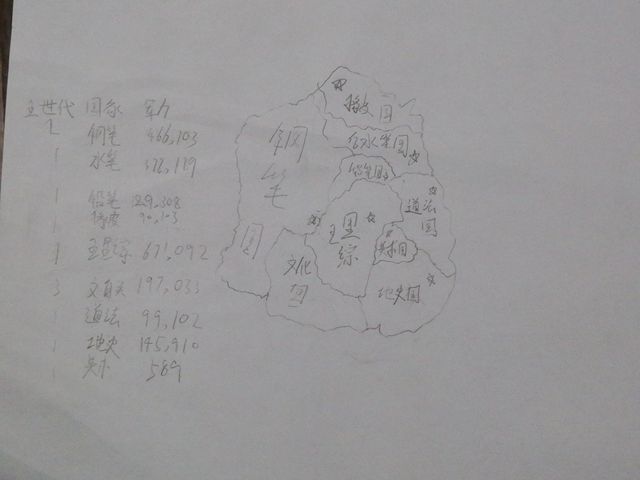 王世代 国家 军力
2 钢笔 466,103
1 水笔 322,119
1 铅笔 129,308
1 橡皮 90,103
主墨综 671,092
3 197,033
1 道法 99,102
1 地史 145,910
1 美术 589
国
钢笔国
水笔国
铅笔国
道法国
主墨综
美术国
文化国
地史国